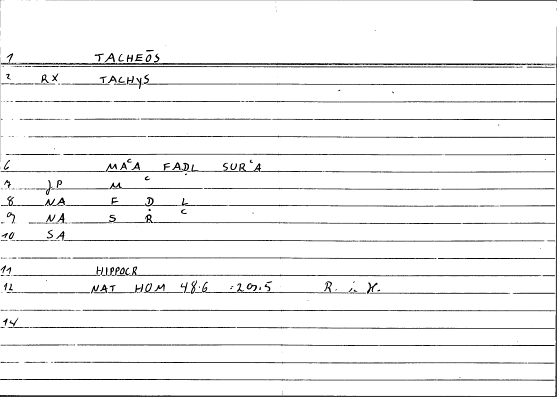 1 TACHEŌS
2 RX TACHYS
6 MAᶜA FAḌL SURᶜA
7 JP M ᶜ
8 NA F Ḍ L
9 NA S R ᶜ
10 SA
11 HIPPOCR
12 NAT HOM 48.6 :209.5 R. in H.
14